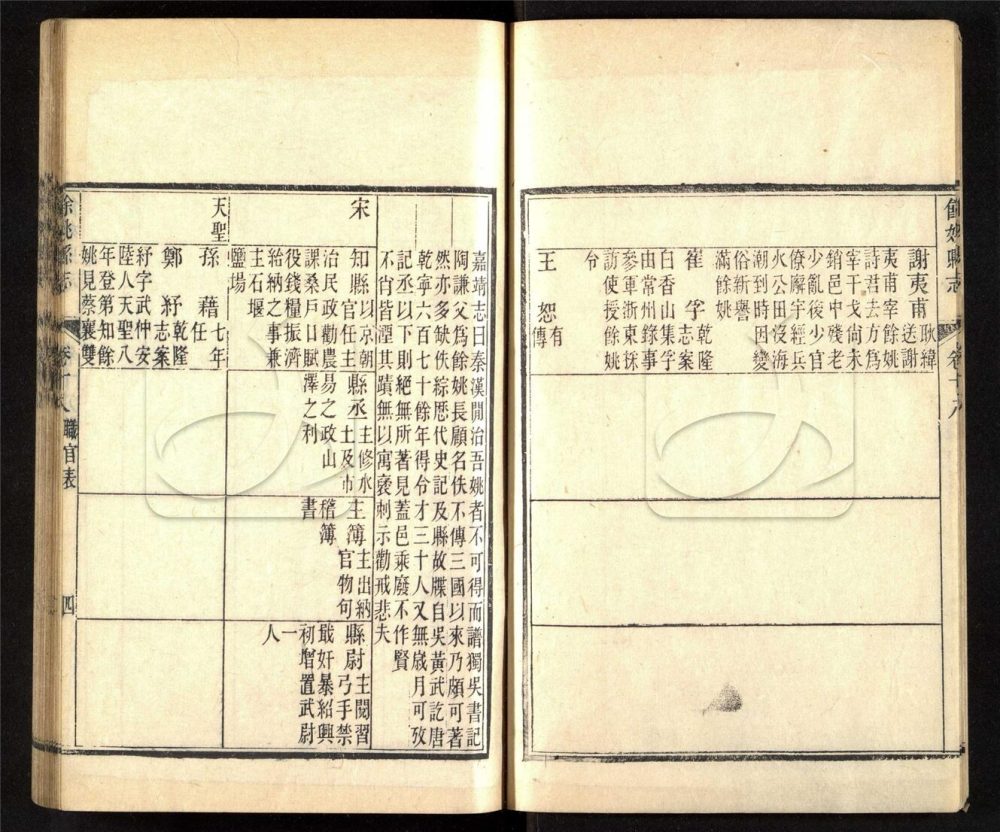 餘姚縣志
卷十八
謝夷甫 耿緯送謝
夷甫宰餘姚
詩君去方為
宰干戈尚未
銷邑中殘老
少亂後少官
僚廨宇經兵
火公田沒海
潮到時因變
俗新譽
滿餘姚
崔孚 乾隆志案
白香山集孚
由常州錄事
參軍浙東採
訪使授餘姚
令
王恕 有傳
嘉靖志曰秦漢閒治吾姚者不可得而譜獨吳書記
陶謙父爲餘姚長顧名佚不傳三國以來乃頗可著
然亦多缺佚綜歷代史記及縣故牒自吳黃武訖唐
乾寧六百七十餘年得令才三十人又無歲月可攷
記丞以下則絕無所著見蓋邑乘廢不作賢
不肖皆湮其蹟無以寓褒刺示勸戒悲夫
宋
知縣 以京朝官任主
治民政勸農
課桑戶口賦
役錢糧振濟
給納之事兼
主石堰
鹽場
縣丞 主修水土及市
易之政山
澤之利
主簿 主出納官物勾
稽簿
書
縣尉 主閱習弓手禁
戢奸暴紹興
初增置武尉
一
人
天聖
孫藉 七年任
鄭紓 乾隆志案
紓字武仲安
陸人天聖八
年登第知餘
姚見蔡襄雙
餘姚縣志
卷十八
職官表
四